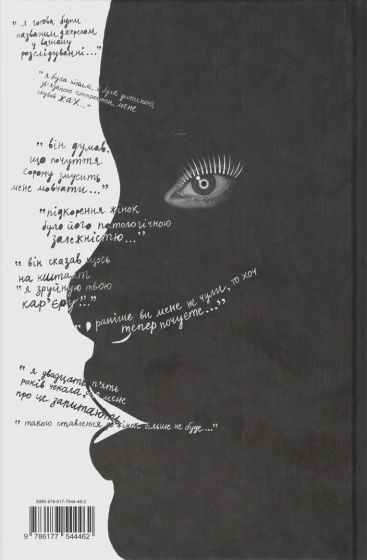 "я готова бути
названим джерелом
у вашому
розслідуванні..."
"я була ніким, я була дитиною,
зв'язаною контрактом, мене
скував жах..."
"він думав,
що почуття
сорому змусить
мене мовчати..."
"підкорення жінок
було його патологічною
залежністю..."
"він сказав щось
на кшталт
"я зруйную твою
кар'єру"..."
"раніше ви мене не чули, то хоч
тепер почуєте..."
"я двадцять п'ять
років чекала, що мене
про це запитають"
"такого ставлення до жінок більше не буде..."
ISBN 978-617-7544-46-2
9 786177 544462